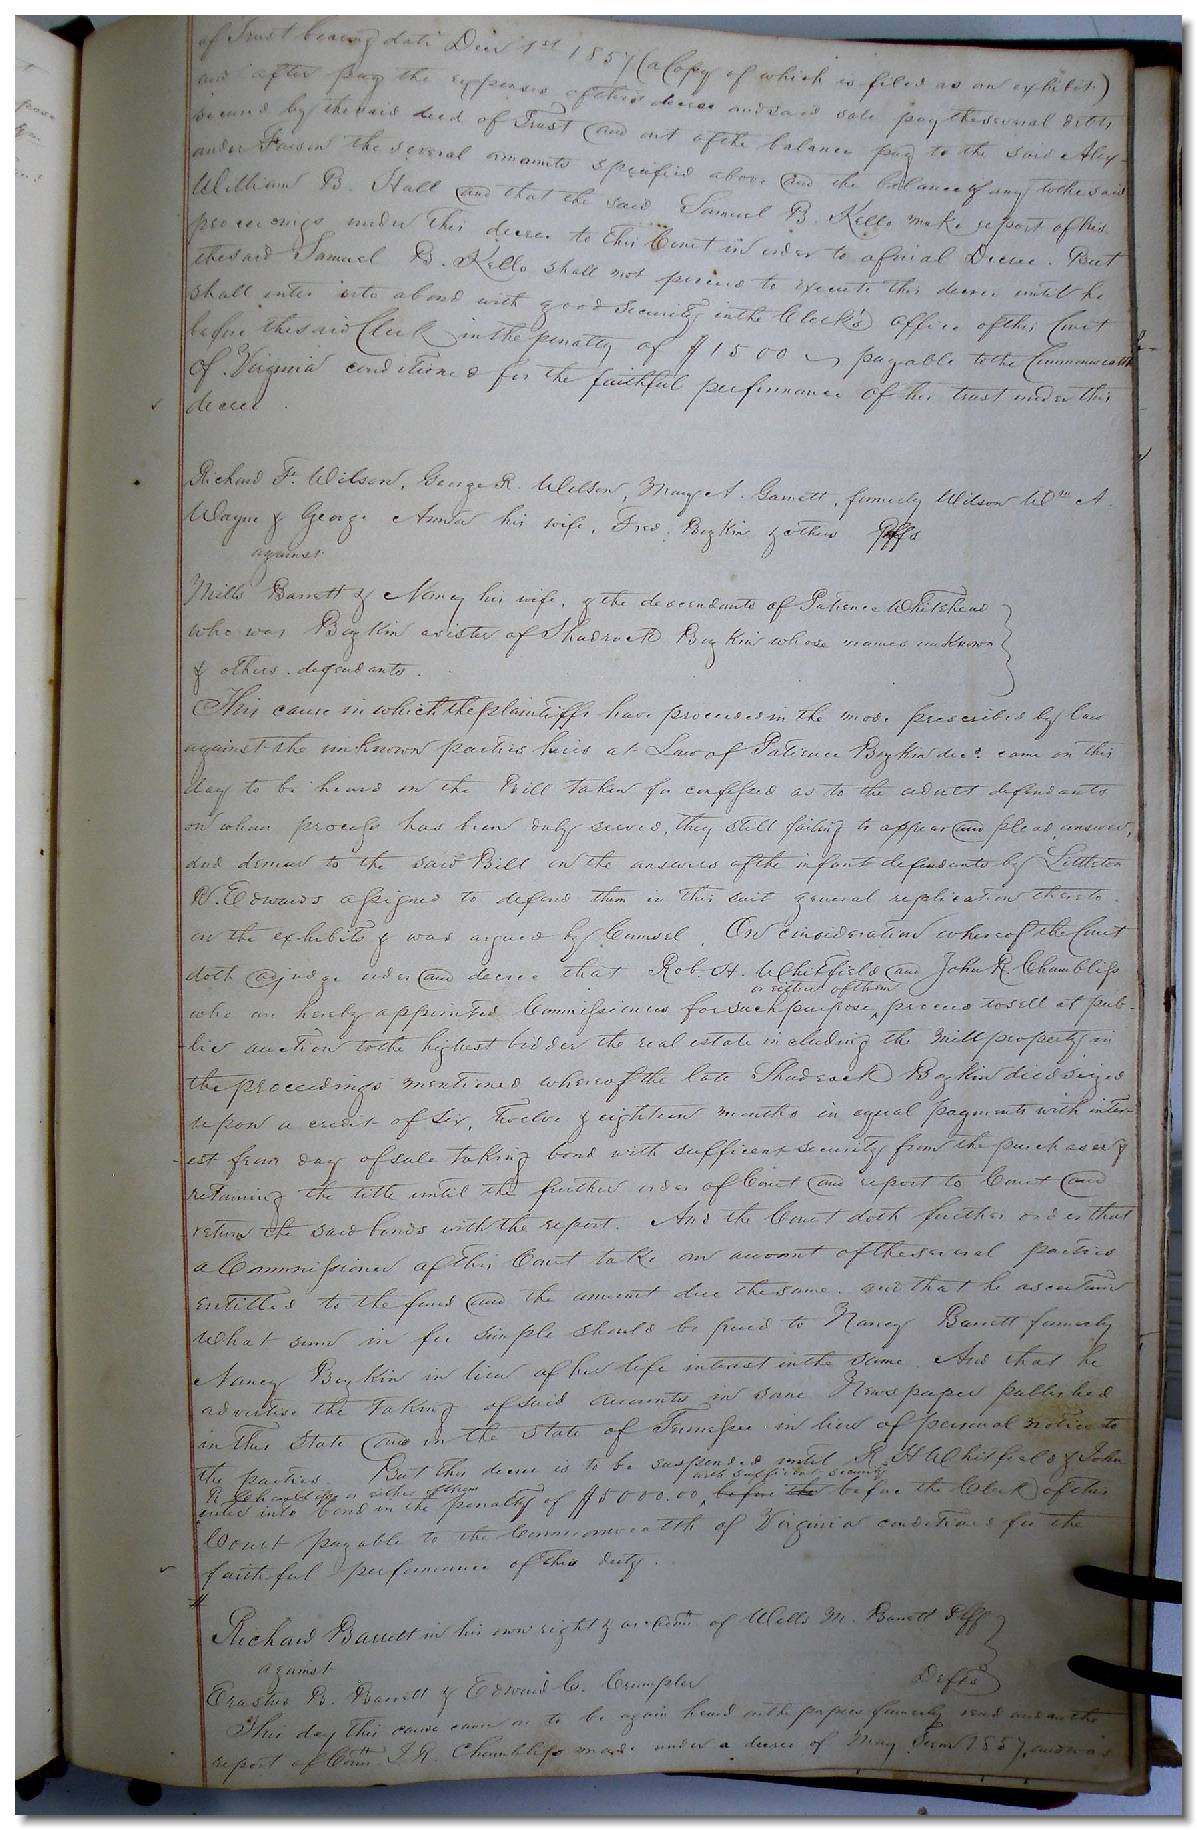 of Trust bearing date Decr 1st 1857 (a Copy of which is filed as an exhibit)
and after pay the expenses of this decree and said sale pay the several debts
secured by the said deed of Trust and out of the balance pay to the said Alex-
ander Faison the several amounts specified above and the balance if any to the said
William B. Hall and that the said Samuel B. Kello make report of his
proceedings under this decree to this Court in order to a final Decree. But
the said Samuel B. Kello shall not proceed to execute this decree until he
shall enter into a bond with good Security in the Clerk's office of this Court
before the said Clerk in the penalty of $1500 payable to the Commonwealth
of Virginia conditioned for the faithful performance of his trust under this
decree.
Richard F. Wilson, George R. Wilson, Mary A. Garrett, formerly Wilson Wm A.
Wayne & George his wife, Fred. Boykin & others Plffs
against
Mills Barrett & Nancy his wife, & the descendants of Patience Whitehead
who was Boykin a sister of Shadrack Boykin whose names unknown
& others. defendants.
This cause in which the plaintiffs have proceeded in the mode prescribed by law
against the unknown parties heirs at Law of Patience Boykin decd. came on this
day to be heard on the Bill taken for confessed as to the adult defendants
on whom process has been duly served, they still failing to appear and plead answer,
and demur to the said Bill on the answers of the infant defendants by Littleton
R. Edwards assigned to defend them in this suit general replication thereto.
on the exhibits & was argued by Counsel. On consideration whereof the Court
doth adjudge order and decree that Rob. H. Whitfield and John R. Chambliss
or either of them
who are hereby appointed Commissioners for such purpose, proceed to sell at pub-
-lic auction to the highest bidder the real estate including the mill property in
the proceedings mentioned whereof the late Shadrack Boykin died seized
upon a credit of six, twelve & eighteen months in equal payments with inter-
-est from day of sale taking bond with sufficient security from the purchaser &
retaining the title until the further order of Court and report to Court and
return the said bonds with the report. And the Court doth further order that
a Commissioner of this Court take an account of the several parties
entitled to the fund and the amount due the same. and that he ascertain
what sum in fee simple should be paid to Nancy Barrett formerly
Nancy Boykin in lieu of her life interest in the same. And that he
advertise the taking of said accounts in some Newspaper published
in this State and in the State of Tennessee in lieu of personal notice to
the parties. But this decree is to be suspended until R. H Whitfield & John
R. Chambliss or either of them with sufficient security
enter into bond in the penalty of $5000.00, before the before the Clerk of this
Court payable to the Commonwealth of Virginia conditioned for the
faithful performance of this duty.
Richard Barrett in his own right & as Admr of Wells M. Barrett Plff
against
Erastus B. Barrett & Edward C. Crumpler Defts
This day this cause came on to be again heard on the papers formerly read and on the
report of Comr J. R. Chambliss made under a decree of May Term 1857, and was